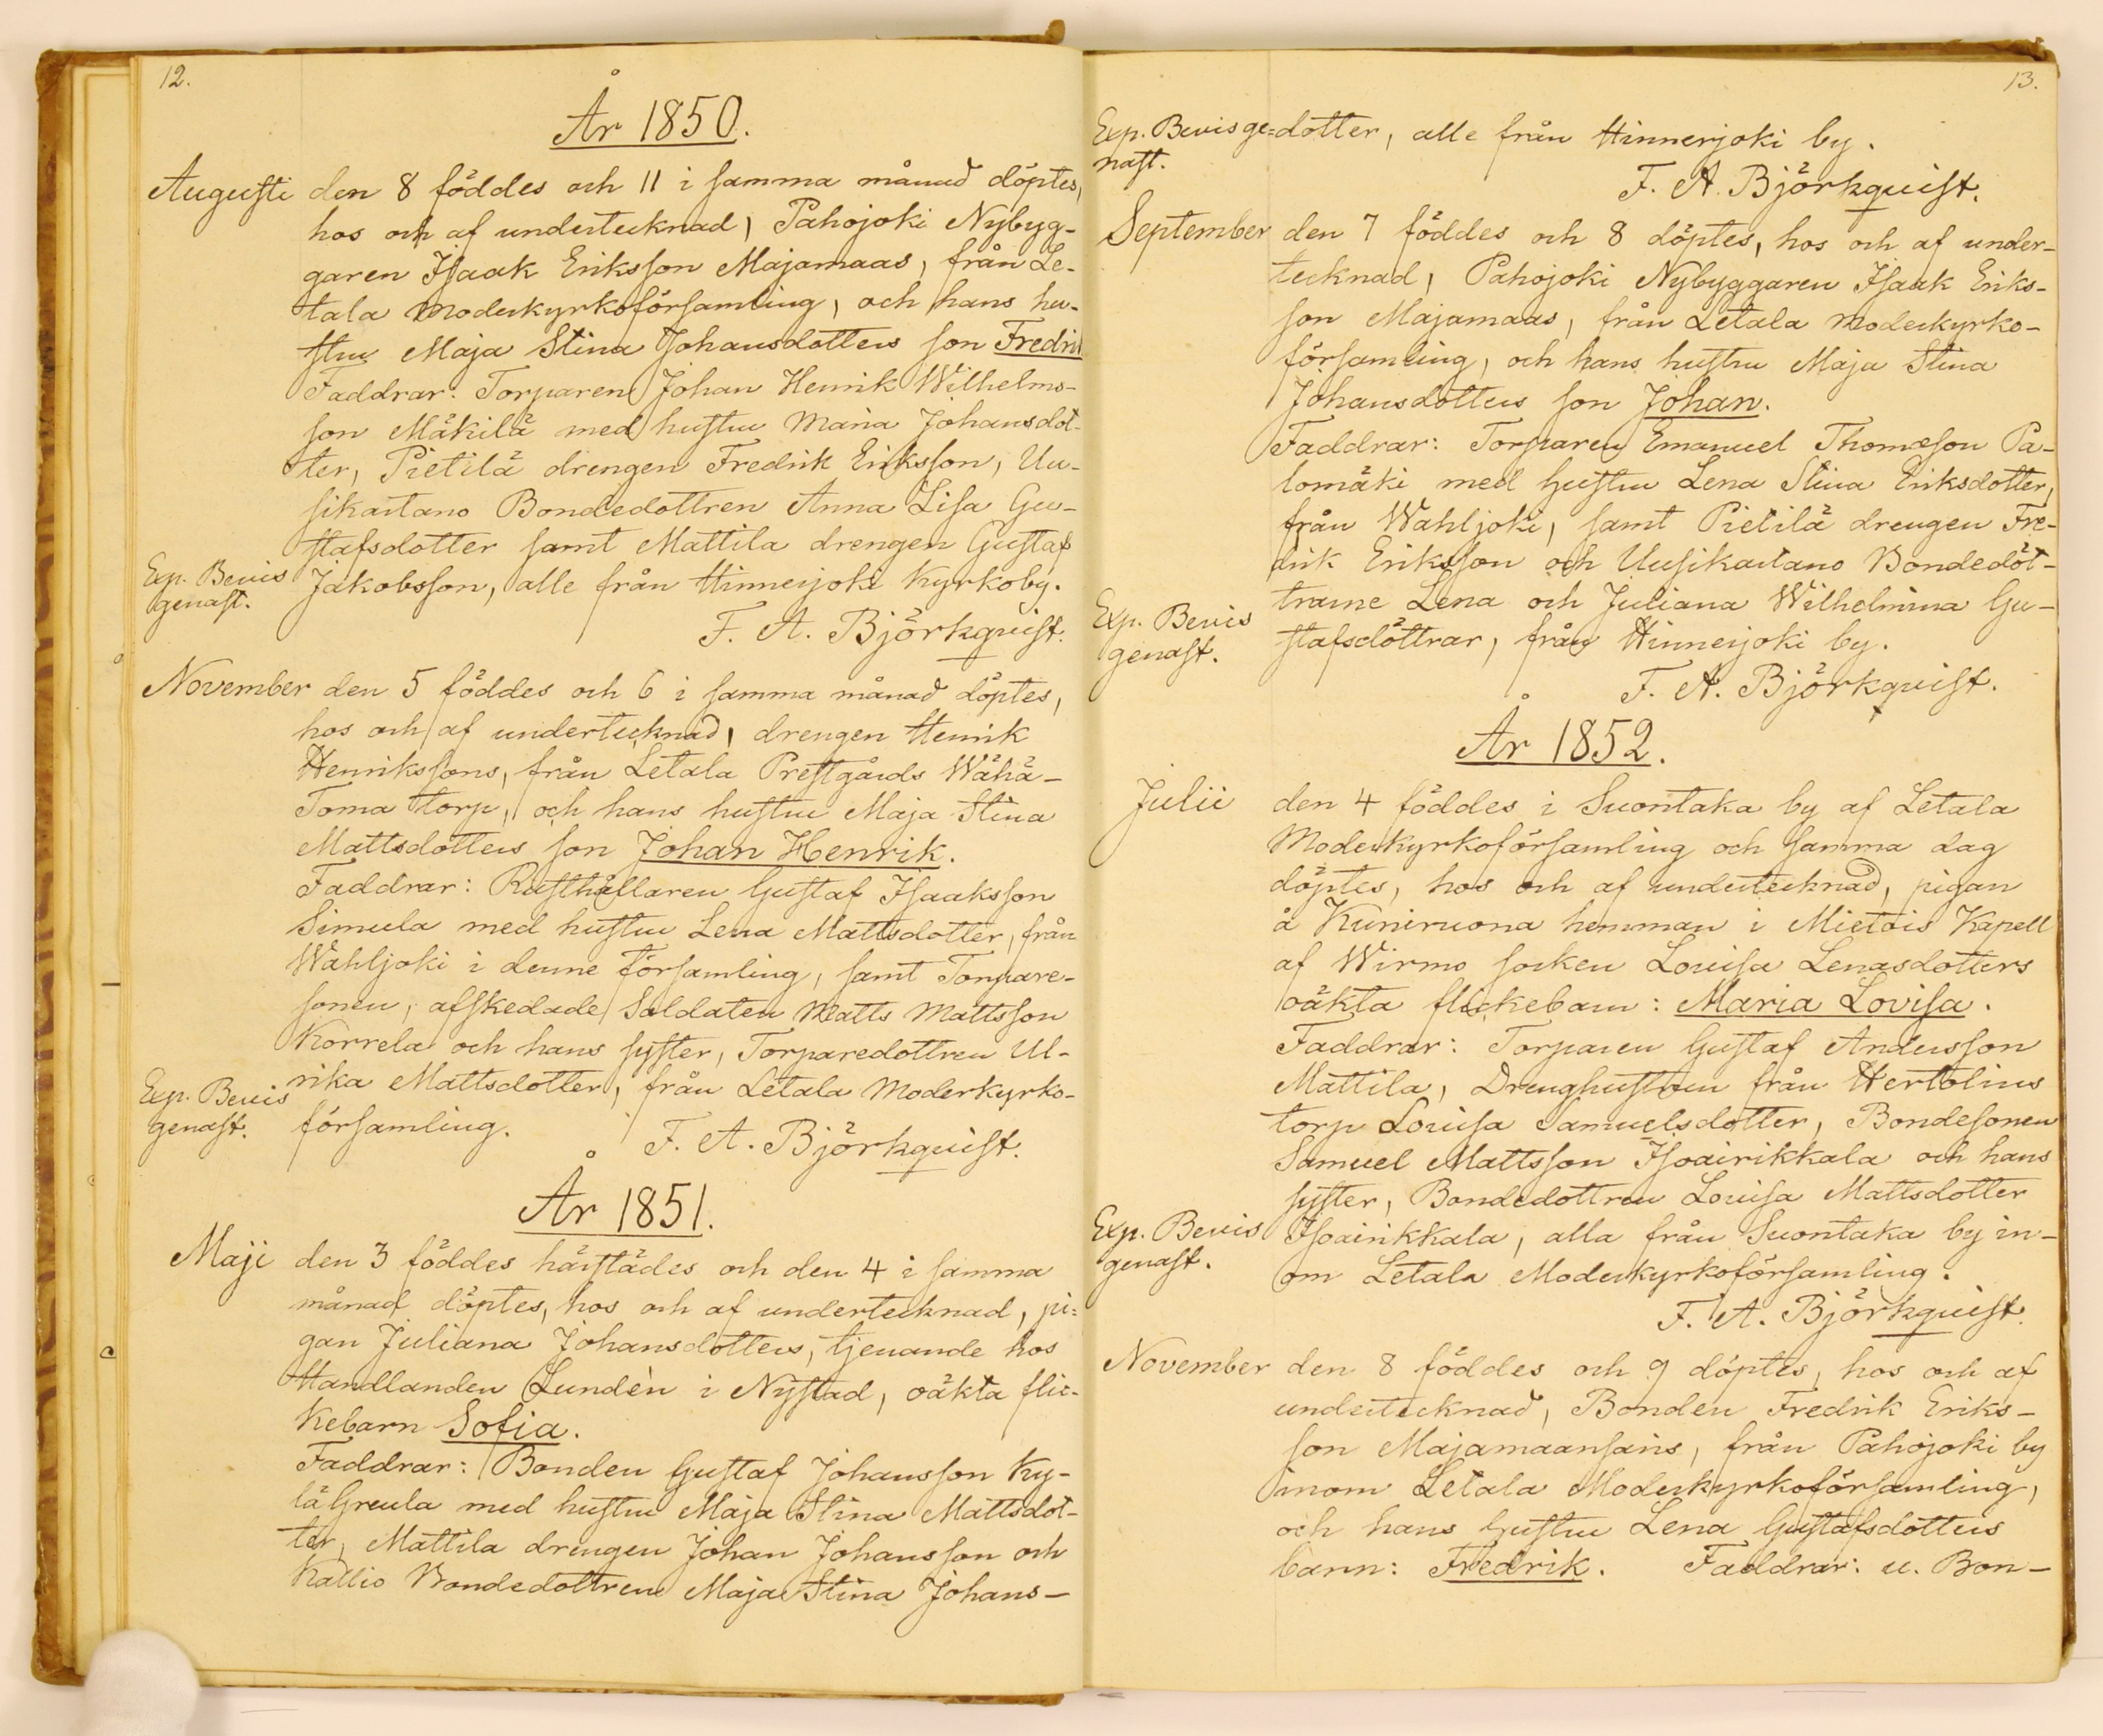 12.
År 1850.
Augusti den 8 föddes och 11 i samma månad döptes,
hos och af undertecknad, Pahojoki Nybyg-
garen Isaak Eriksson Majamaas, från Le-
tala Moderkyrkoförsamling, och hans hu-
stru Maja Stina Johansdotters son Fredrik
Faddrar: Torparen Johan Henrik Wilhelms-
son Mäkilä med hustru Maria Johansdot-
ter, Pietilä drengen Fredrik Eriksson, Uu-
sikartano Bondedottren Anna Lisa Gu-
stafsdotter samt Mattila drengen Gustaf
Exp. Bevis Jakobsson, alle från Hinnerjoki Kyrkoby.
genast.
F. A. Björkquist.
November den 5 föddes och 6 i samma månad döptes,
hos och af undertecknad, drengen Henrik
Henrikssons, från Letala Prestgårds Wähä-
Toma torp, och hans hustru Maja Stina
Mattsdotters son Johan Henrik.
Faddrar: Rusthållaren Gustaf Isaaksson
Simula med hustru Lena Mattsdotter, från
Wahljoki i denne församling, samt Torpare-
sonen, afskedade Soldaten Matts Mattsson
Korrela och hans syster, Torparedottren Ul-
Exp. Bevis rika Mattsdotter, från Letala Moderkyrko-
genast. församling.
F. A. Björkquist.
År 1851.
Maji den 3 föddes härstädes och den 4 i samma
månad döptes, hos och af undertecknad, pi=
gan Juliana Johansdotters, tjenande hos
Handlanden Lundèn i Nystad, oäkta flic-
kebarn Sofia.
Faddrar: Bonden Gustaf Johansson Ky-
lä Greula med hustru Maja Stina Mattsdot-
ter, Mattila drengen Johan Johansson och
Kallio Bondedottren Maja Stina Johans-
13.
Exp. Bevis ge= dotter, alle från Hinnerjoki by.
nast.
F. A. Björkquist.
September den 7 föddes och 8 döptes, hos och af under-
tecknad, Pahojoki Nybyggaren Isaak Eriks-
son Majamaas, från Letala Moderkyrko-
församling, och hans hustru Maja Stina
Johansdotters son Johan.
Faddrar: Torparen Emanuel Thomæson Pa-
lomäki med hustru Lena Stina Eriksdotter,
från Wahljoki, samt Pietilä drengen Fre-
drik Eriksson och Uusikartano Bondedöt-
trarne Lena och Juliana Wilhelmina Gu-
Exp. Bevis
genast. stafsdöttrar, från Hinnerjoki by.
F. A. Björkquist.
År 1852.
Julii den 4 föddes i Suontaka by af Letala
Moderkyrkoförsamling och samma dag
döptes, hos och af undertecknad, pigan
å Kuniruona hemman i Mietois Kapell
af Wirmo socken Lovisa Lenasdotters
oäkta flickebarn: Maria Lovisa.
Faddrar: Torparen Gustaf Andersson
Mattila, Drenghustrun från Hertolius
torp Lovisa Samuelsdotter, Bondesonen
Samuel Mattsson Isoairikkala och hans
syster, Bondedottren Lovisa Mattsdotter
Exp. Bevis Isoairikkala, alla från Suontaka by in-
genast. om Letala Moderkyrkoförsamling.
F. A. Björkquist.
November den 8 föddes och 9 döptes, hos och af
undertecknad, Bonden Fredrik Eriks-
son Majamaansaris, från Pahojoki by
inom Letala Moderkyrkoförsamling,
och hans hustru Lena Gustafsdotters
barn: Fredrik. Faddrar: u. Bon-